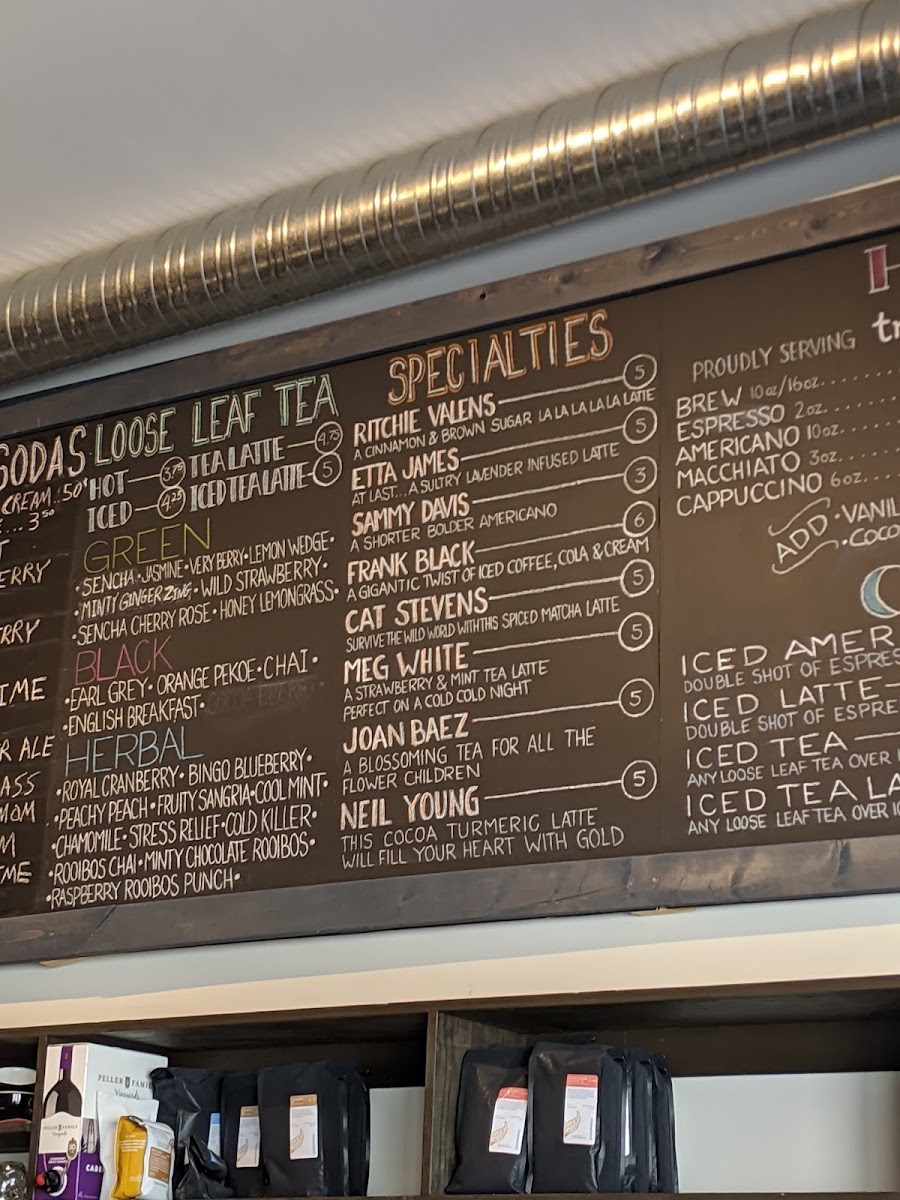 SODAS
CREAM .50
3.50
ERRY
RRY
IME
R ALE
ASS
MOM
M
IME
LOOSE LEAF TEA
HOT 3.75 TEA LATTE 4.75
ICED 4.25 ICED TEA LATTE 5
GREEN
• SENCHA • JASMINE • VERY BERRY • LEMON WEDGE •
• MINTY GINGER ZING • WILD STRAWBERRY •
• SENCHA CHERRY ROSE • HONEY LEMONGRASS •
BLACK
• EARL GREY • ORANGE PEKOE • CHAI •
• ENGLISH BREAKFAST •
HERBAL
• ROYAL CRANBERRY • BINGO BLUEBERRY •
• PEACHY PEACH • FRUITY SANGRIA • COOL MINT •
• CHAMOMILE • STRESS RELIEF • COLD KILLER •
• ROOIBOS CHAI • MINTY CHOCOLATE ROOIBOS •
• RASPBERRY ROOIBOS PUNCH •
SPECIALTIES
RITCHIE VALENS 5
A CINNAMON & BROWN SUGAR LA LA LA LA LATTE
ETTA JAMES 5
AT LAST... A SULTRY LAVENDER INFUSED LATTE
SAMMY DAVIS 3
A SHORTER BOLDER AMERICANO
FRANK BLACK 6
A GIGANTIC TWIST OF ICED COFFEE, COLA & CREAM
CAT STEVENS 5
SURVIVE THE WILD WORLD WITH THIS SPICED MATCHA LATTE
MEG WHITE 5
A STRAWBERRY & MINT TEA LATTE
PERFECT ON A COLD COLD NIGHT
JOAN BAEZ 5
A BLOSSOMING TEA FOR ALL THE
FLOWER CHILDREN
NEIL YOUNG 5
THIS COCOA TURMERIC LATTE
WILL FILL YOUR HEART WITH GOLD
H
PROUDLY SERVING tr
BREW 10oz/16oz.......
ESPRESSO 2oz.......
AMERICANO 10oz.......
MACCHIATO 3oz.......
CAPPUCCINO 6oz.......
ADD • VANIL
• COCO
ICED AMER
DOUBLE SHOT OF ESPRES
ICED LATTE
DOUBLE SHOT OF ESPRE
ICED TEA
ANY LOOSE LEAF TEA OVER I
ICED TEA LA
ANY LOOSE LEAF TEA OVER IC
PELLER FAMILY
Vineyards
CABE